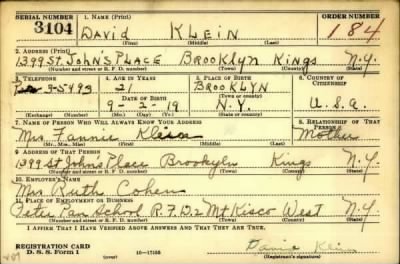 SERIAL NUMBER 1. NAME (Print) ORDER NUMBER
3104 DAVID KLEIN 184
(First) (Middle) (Last)
2. ADDRESS (Print)
1399 ST. JOHN'S PLACE BROOKLYN KINGS N.Y.
(Number and street or R. F. D. number) (Town) (County) (State)
3. TELEPHONE 4. AGE IN YEARS 5. PLACE OF BIRTH 6. COUNTRY OF CITIZENSHIP
3-5493 21 BROOKLYN
DATE OF BIRTH (Town or county)
9-2-19 N.Y. U.S.A.
(Exchange) (Number) (Mo.) (Day) (Yr.) (State or country)
7. NAME OF PERSON WHO WILL ALWAYS KNOW YOUR ADDRESS 8. RELATIONSHIP OF THAT PERSON
Mrs. Fannie Klein Mother
(Mr., Mrs., Miss) (First) (Middle) (Last)
9. ADDRESS OF THAT PERSON
1399 St Johns Place Brookyln Kings N.Y.
(Number and street or R. F. D. number) (Town) (County) (State)
10. EMPLOYER'S NAME
Mrs Ruth Cohen
11. PLACE OF EMPLOYMENT OR BUSINESS
Peter Pan School R.F.D.2 Mt Kisco West N.Y.
(Number and street or R. F. D. number) (Town) (County) (State)
I AFFIRM THAT I HAVE VERIFIED ABOVE ANSWERS AND THAT THEY ARE TRUE.
REGISTRATION CARD
D. S. S. Form 1 (over) 16-17105 Klein
(Registrant's signature)